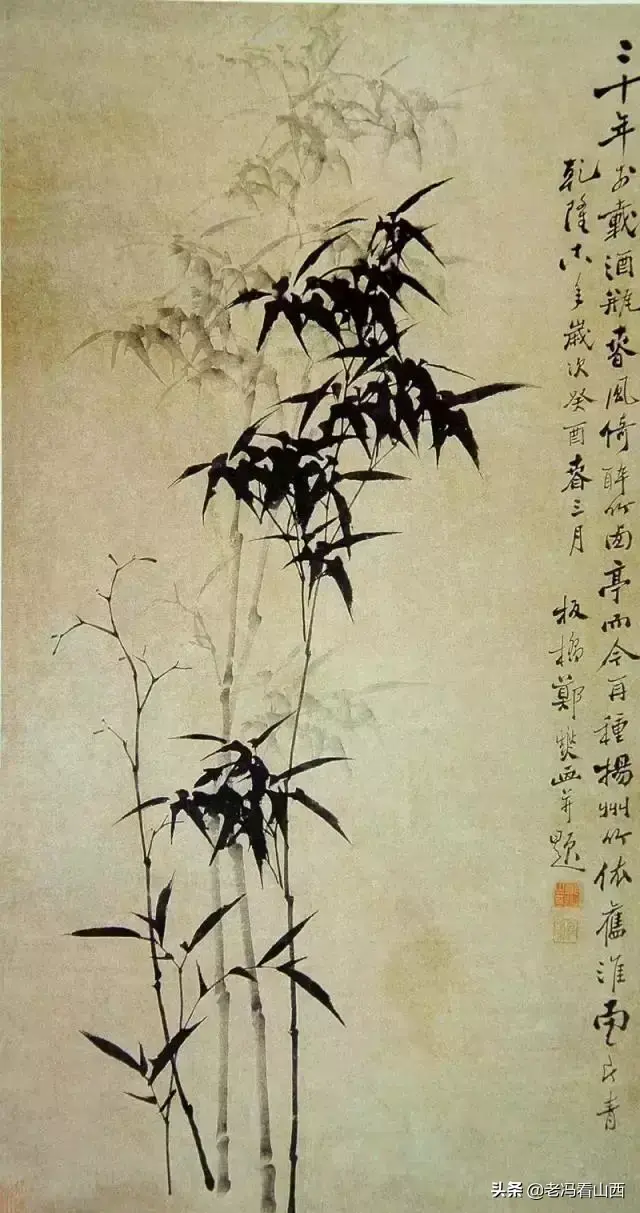 三十年前載酒瓶春風倚醉竹西亭而今再種揚州竹依舊淮南一片青
乾隆十八年歲次癸酉春三月
板橋鄭燮画并題
头条 @老冯看山西